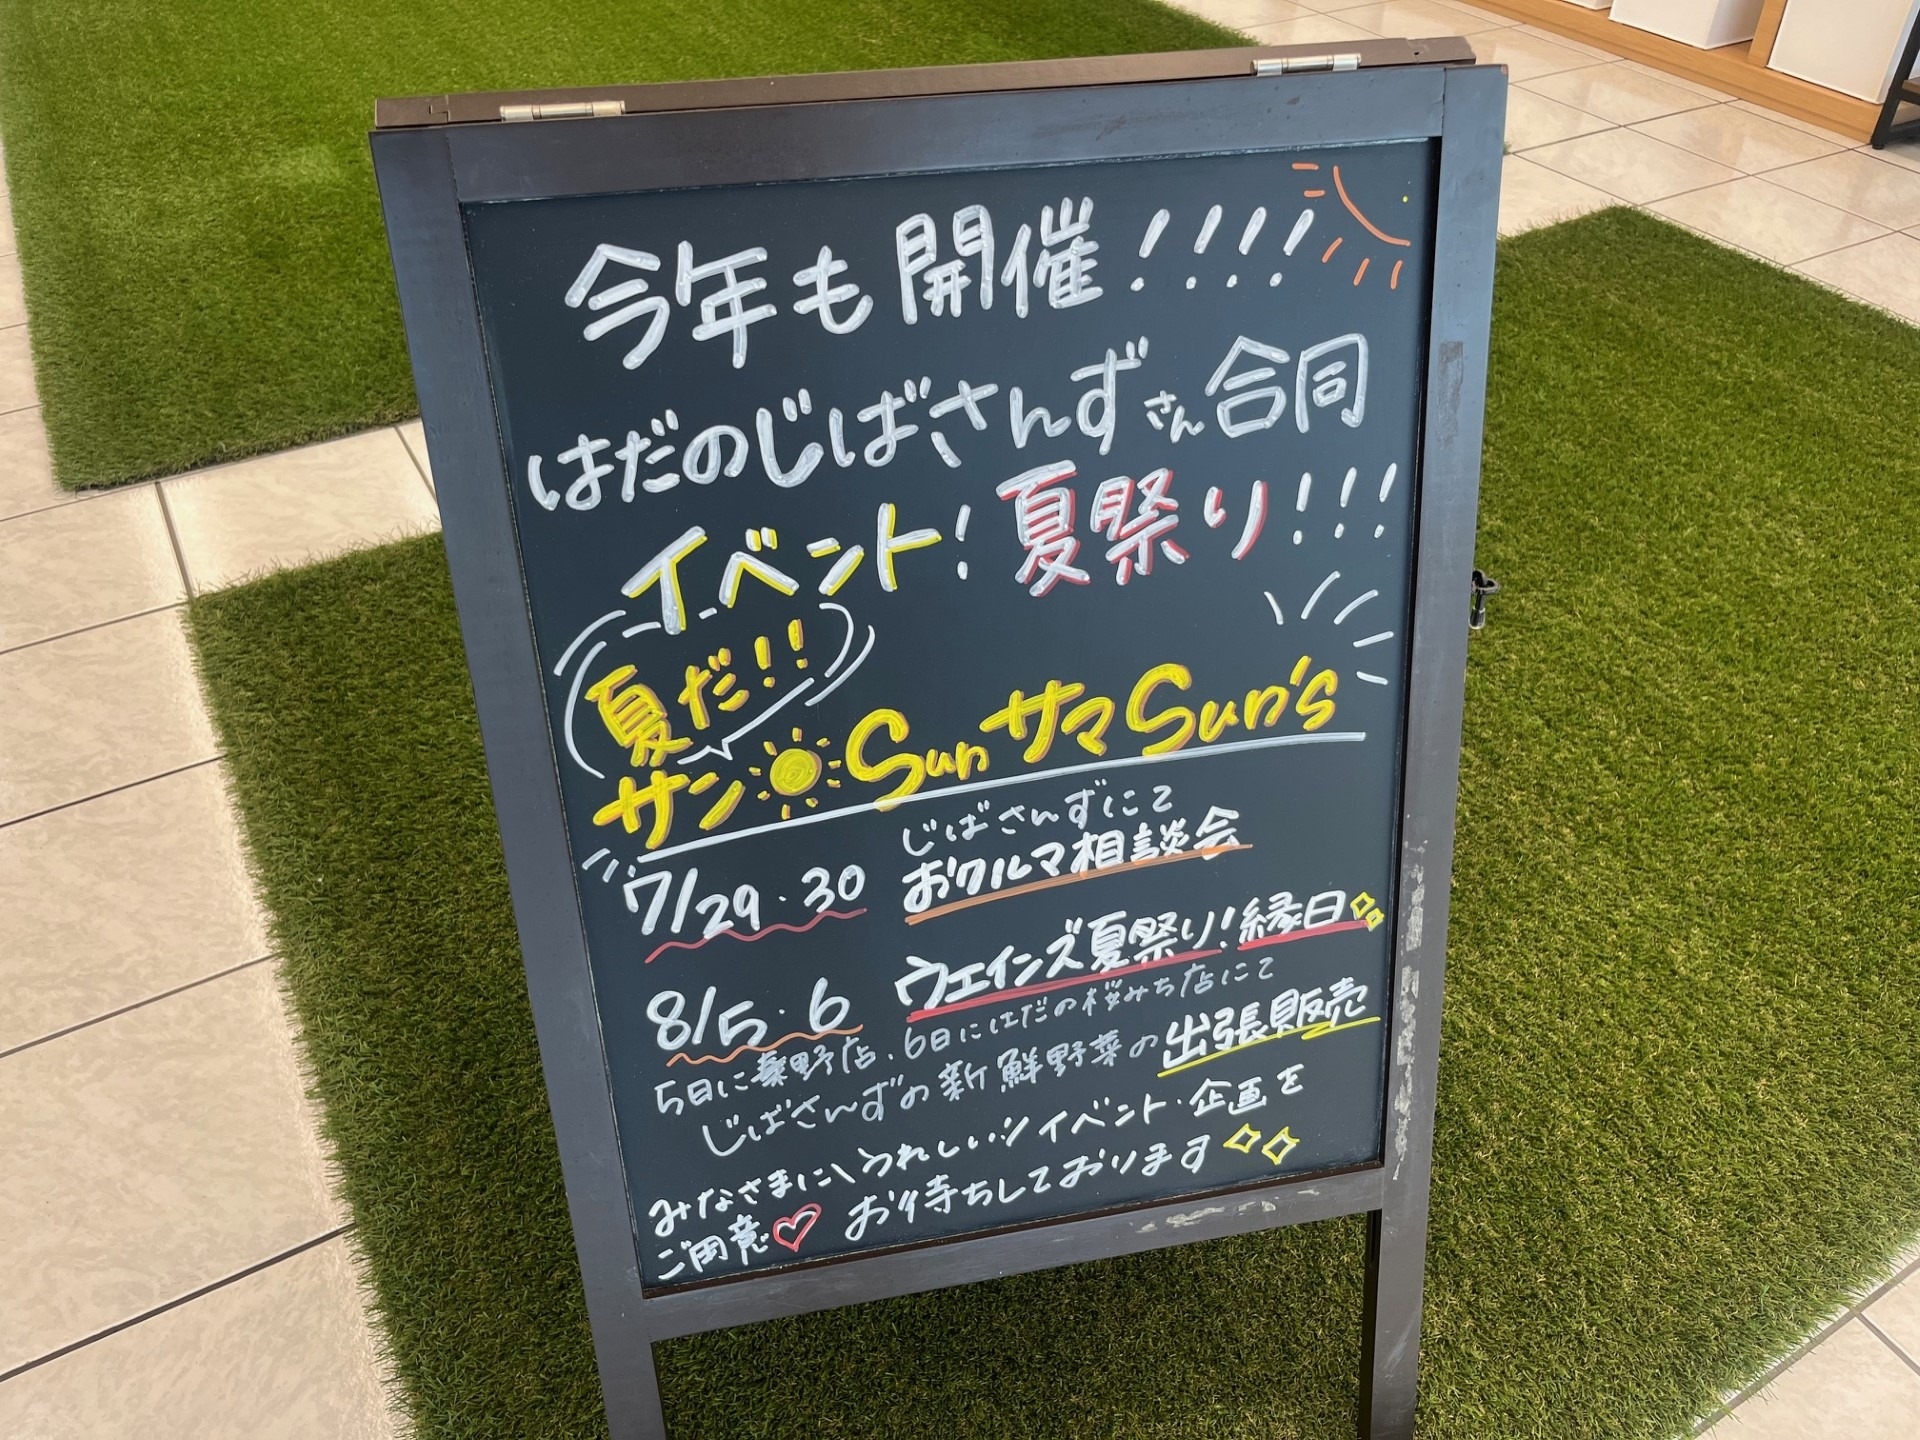 今年も開催!!!!
はだのじばさんずさん合同
イベント!夏祭り!!!
夏だ!!
サンSunサマSun's
じばさんずにて
7/29・30 おクルマ相談会
8/5・6 ウエインズ夏祭り!縁日
5日に秦野店、6日にはだの桜みち店にて
じばさんずの新鮮野菜の出張販売
みなさまに\うれしい!/イベント・企画を
ご用意♡お待ちしております